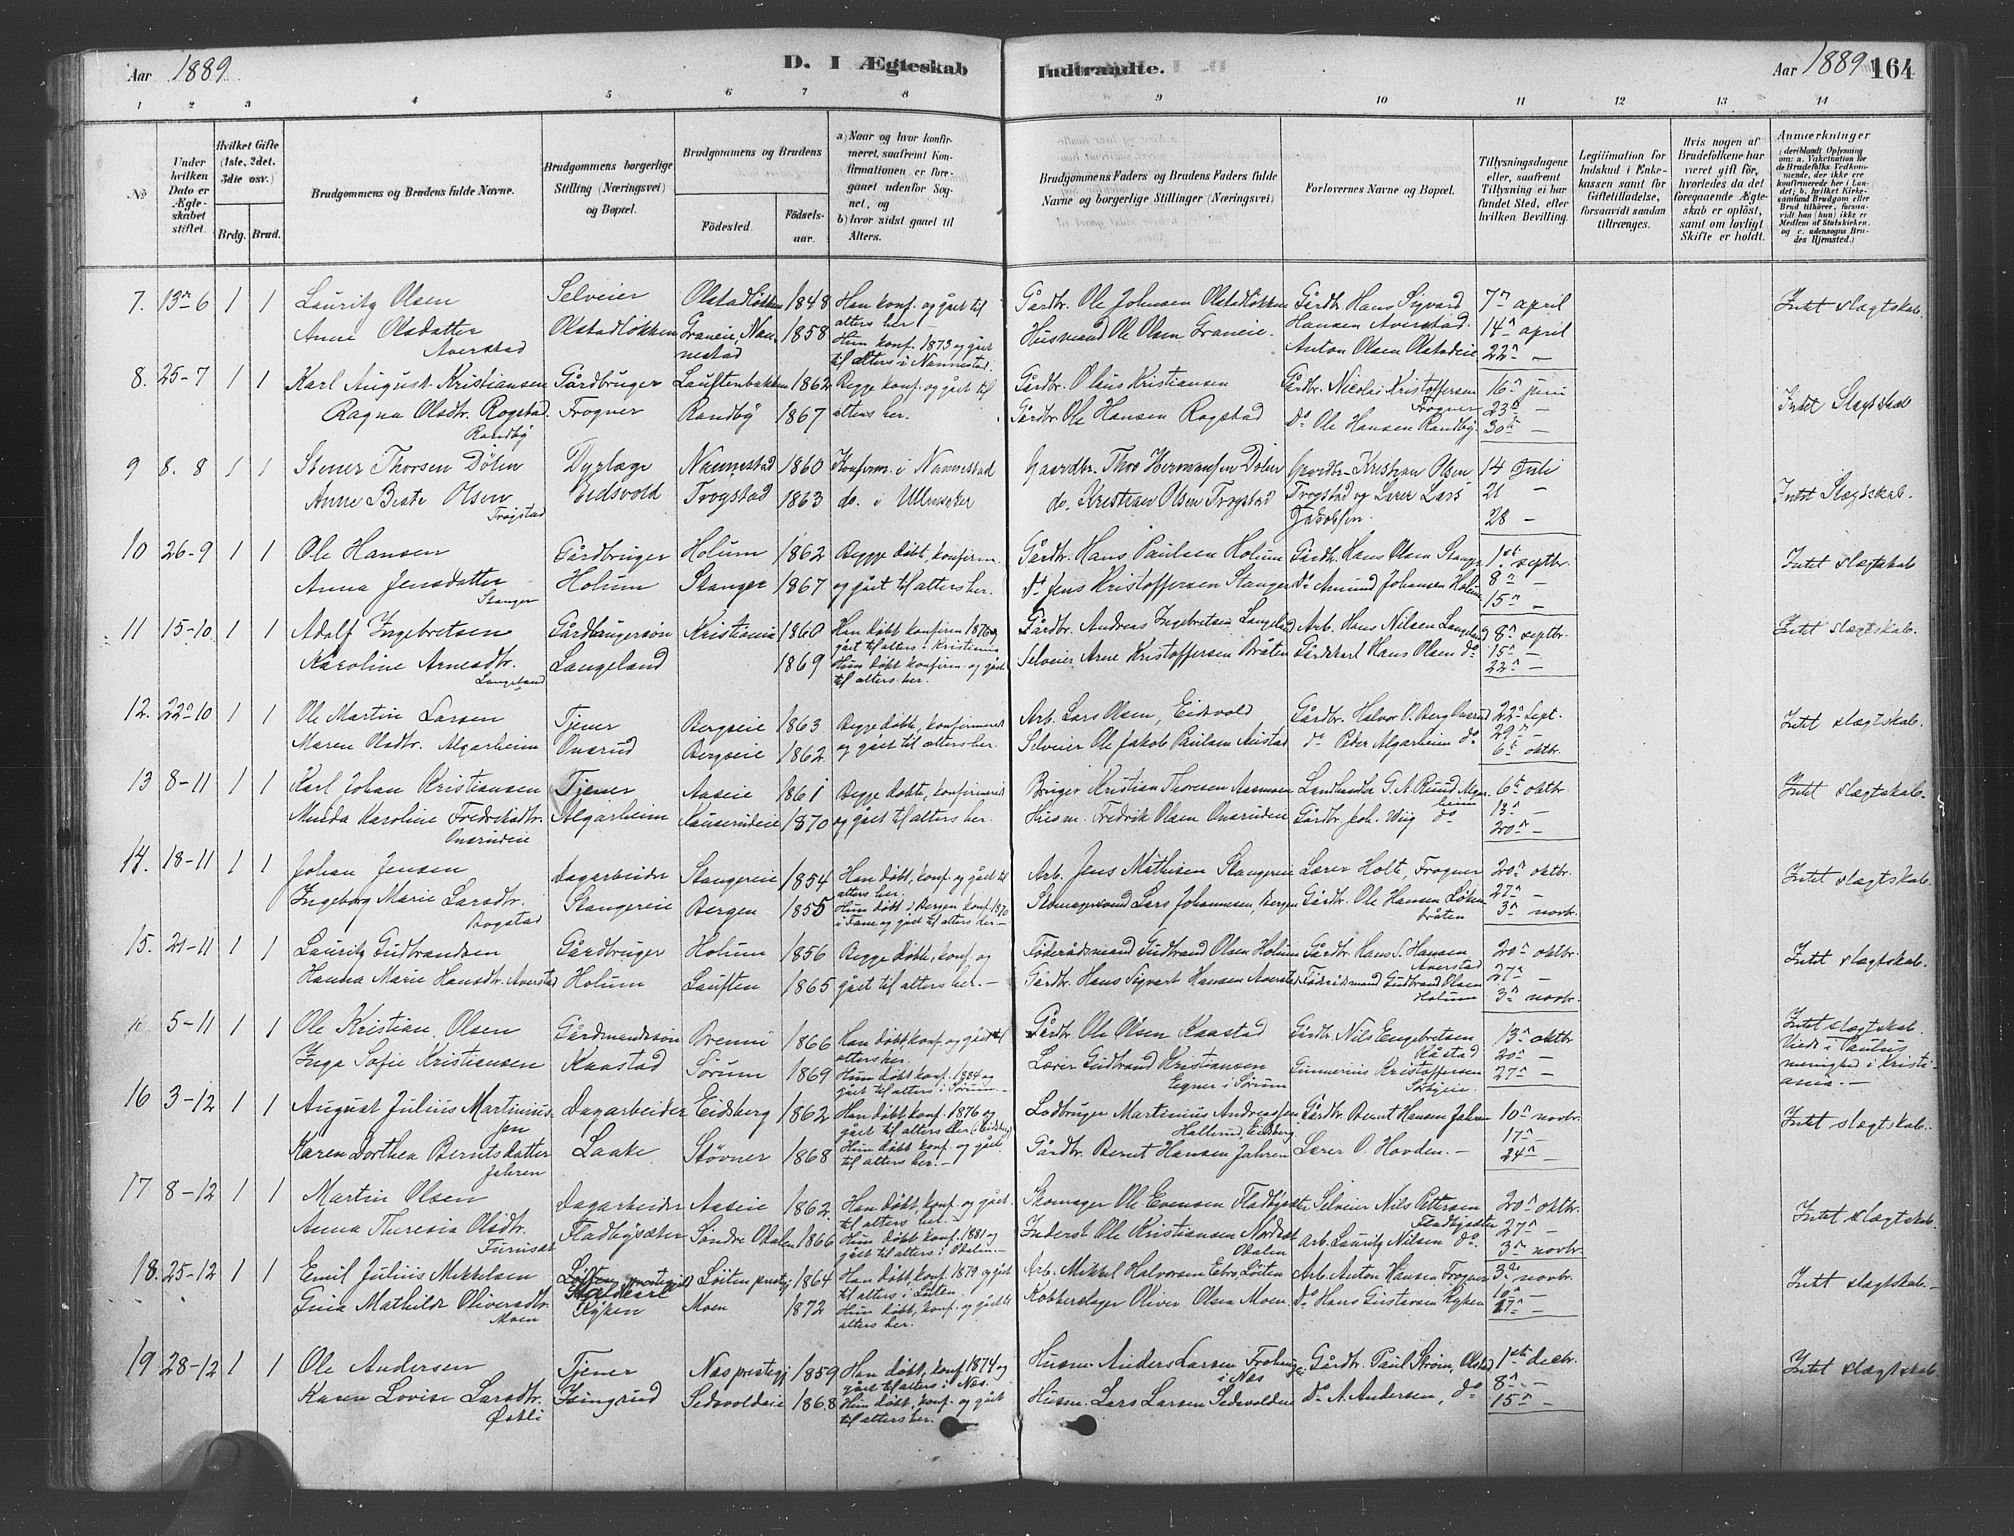 Aar 1889. D. I Ægteskab Indtraadte. Aar 1889 164
1 2 3 4 5 6 7 8 9 10 11 12 13 14
№
Under hvilken Dato er Ægteskabet stiftet.
Hvilket Gifte (1ste, 2det, 3die osv.)
Brdg. Brud.
Brudgommens og Brudens fulde Navne.
Brudgommens borgerlige Stilling (Næringsvei) og Bopæl.
Brudgommens og Brudens
Fødested. Fødselsaar.
a) Naar og hvor konfirmeret, saafremt Konfirmationen er foregaaet udenfor Sognet, og
b) hvor sidst gaaet til Alters.
Brudgommens Faders og Brudens Faders fulde Navne og borgerlige Stillinger (Næringsvei)
Forlovernes Navne og Bopæl.
Tillysningsdagene eller, saafremt Tillysning ei har fundet Sted, efter hvilken Bevilling.
Legitimation for Indskud i Enkekassen samt for Giftetilladelse, forsaavidt saadan tiltrænges.
Hvis nogen af Brudefolkene har været gift før, hvorledes da det foregaaende Ægteskab er opløst, samt om lovligt Skifte er holdt.
Anmærkninger
7. 13n 6 1 1 Lauritz Olsen Selveier Olstadløkken 1848 Han konf. og gået til alters her Gårdbr. Ole Johnsen Olstadløkken Gårdb. Hans Sigvard Hansen Averstad. 7n april Intet slagtskab.
Anne Olsdatter Averstad Olstadløkken Graneie, Nannestad 1858 Hun konf. 1873 og gået til alters i Nannestad. Husmand Ole Olsen Graneie. Anton Olsen Olstadeie 14n april 22n –
8. 25-7 1 1 Karl August Kristiansen Gårdbruger Lauftenbakken 1862 Begge konf. og gået til alters her. Gårdbr. Olaus Kristiansen Gårdbr. Nicolai Kristoffersen Frogner 16n juni Intet Slagtskab
Ragna Olsdtr. Rogstad Randby Frogner Randby 1867 Gårdbr. Ole Hansen Rogstad Do Ole Hansen Randby. 23n – 30te –
9 8. 8 1 1 Stener Thorsen Dølen Dyrlæge Nannestad 1860 Konfirm. i Nannestad Gaardbr. Thos Hermansen Dølen Gaardbr. Kristian Olsen 14 Juli Intet Slægdskab.
Anne Beate Olsen Trøgstad Eidsvold Trøgstad 1863 do. i Ullensaker do. Kristian Olsen Trøgstad Trøgstad og Lærer Lars Jakobsen. 21 – 28 –
10 26-9 1 1 Ole Hansen Gårdbruger Holum 1862 Begge døbt, konfirm. og gået til alters her. Gårdbr. Hans Paulsen Holum Gårdb. Hans Olsen Stanger 1ste septbr. Intet slagtskab.
Anna Jensdatter Stanger Holum Stanger 1867 Do Jens Kristoffersen Stanger Do Amund Johansen Holum 8n – 15n –
11 15-10. 1 1 Adolf Ingebretsen Gårdbrugersøn Kristiania 1860 Han døbt, konfirm. 1876 og gået til alters i Kristiania Gårdbr. Andreas Ingebretsen Langeland Arb. Hans Nilsen Langeland 8n septbr. Intet slagtskab.
Karoline Arnesdtr. Langeland Langeland 1869 Hun døbt konfirm. og gået til alters her. Selveier Arne Kristoffersen Bråten Gårdskarl Hans Olsen do 15n – 22n –
12. 22n 10 1 1 Ole Martin Larsen Tjener Bergseie 1863 Begge døbte, konfirmeret og gået til alters her. Arb. Lars Olsen, Eidsvold Gårdbr. Halvor O. Berg Onsrud 22n Sept. Intet slagtskab.
Maren Olsdtr. Algarheim Onsrud Bergseie 1862. Selveier Ole Jakob Paulsen Austad do Peder Algarheim do 29n – 6te oktbr.
13 8-11 1 1 Karl Johan Kristiansen Tjener Aaseie 1861 Begge døbte, konfirmeret og gået til alters her. Bruger Kristian Thoresen Aasmoen Landhandler G. A. Ruud Algarheim 6te oktbr. Intet slagtskab.
Minda Karoline Fredriksdtr. Onsrudeie Algarheim Kauserudeie 1870 Husm. Fredrik Olsen Onsrudeie Gårdbr. Joh. Wiig do 13n – 20n –
14. 18-11 1 1 Johan Jensen Dagarbeider Stangereie 1854 Han døbt, konf. og gået til alters her. Arb. Jens Mathisen Stangereie Lærer Holt, Frogner 20n oktbr. Intet slagtskab.
Ingeborg Marie Larsdtr. Rogstad Stangereie Bergen 1855 Hun døbt i Bergen konf. 1870 i Fane og gået til alters her. – Skomagersvend Lars Johannesen, Bergen Gårdbr. Ole Hansen Løkenbråten 27n – 3n novbr.
15. 21-11 1 1 Lauritz Gudbrandsen Gårdbruger Holum 1856 Begge døbte, konf. og gået til alters her. – Føderådsmand Gudbrand Olsen Holum Gårdbr. Hans S. Hansen Averstad 20n oktbr. Intet slagtskab.
Hanna Marie Hansdtr. Averstad Holum Lauften 1865 Gårdbr. Hans Sigvart Hansen Averstad Føderådsmand Gudbrand Olsen Holum 27n – 3n novbr.
5-11 1 1 Ole Kristian Olsen Gårdmandssøn Brenni 1866 Han døbt, konf. og gået til alters her. Gårdbr. Ole Olsen Kaastad Gårdbr. Nils Engebretsen Kåstad 13n oktbr Intet slagtskab. Viede i Paulus menighed i Kristiania. –
Inga Sofie Kristiansen Kaastad Sørum 1869 Hun døbt, konf. 1884 og gået til alters i Sørum. Lærer Gudbrand Kristiansen Egner i Sørum Gunnerius Kristoffersen 20n – 27n –
16 3-12 1 1 August Julius Martiniussen Dagarbeider Eidsberg 1862 Han døbt, konf. 1876 og gået til alters her (Eidsberg) Lodbruger Martinius Andreassen Hallerud, Eidsberg Gårdbr. Bernt Hansen Jahren 10n novbr. Intet slagtskab.
Karen Dorthea Berntsdatter Jahren Laake Støvner 1868 Hun døbt konf. og gået til alters her. – Gårdbr. Bernt Hansen Jahren Lærer O. Hovden. – 17n – 24n –
17 8-12 1 1 Martin Olsen Dagarbeider Aaseie 1862. Han døbt, konf. og gået til alters her. Skomager Ole Evensen Fladbysæter Selveier Nils Pettersen Fladbysæter 20n oktbr. Intet slagtskab.
Anna Theresia Olsdtr. Furuset Fladbysæter Søndre Odalen 1866 Hun døbt, konf. 1881 og gået til alters i Odalen. – Inderst Ole Kristiansen Nordset Odalen Arb. Lauritz Nilsen do. 27n – 3n novbr
18. 25-12 1 1 Emil Julius Mikkelsen Løiten prestegjeld Løiten prestgj. 1864 Han døbt, konf. 1879 og gået til alters i Løiten. Arb. Mikkel Halvorsen Ebro, Løiten Arb. Anton Hansen Frogner 3die novbr. Intet slagtskab. –
Gina Mathilde Oliversdtr. Moen Ryken Moen 1872 Hun døbt, konf. og gået til alters her. Kobberslager Oliver Olsen Moen Do Hans Gustavsen Ryken 10n – 17n –
19 28-12 1 1 Ole Andersen Tjener Nas prestegj 1859 Han døbt, konf. 1874 og gået til alters i Nas. Husm. Anders Larsen i Nas Gårdbr. Paul Strøm, Olstad 1ste decbr. Intet slagtskab.
Karen Lovise Larsdtr. Østli Isingrud Sedsvoldeie 1868 Hun døbt, konf. og gået til alters her. Husm. Lars Larsen Sedsvoldeie Do A. Andersen, do 8n – 15n –